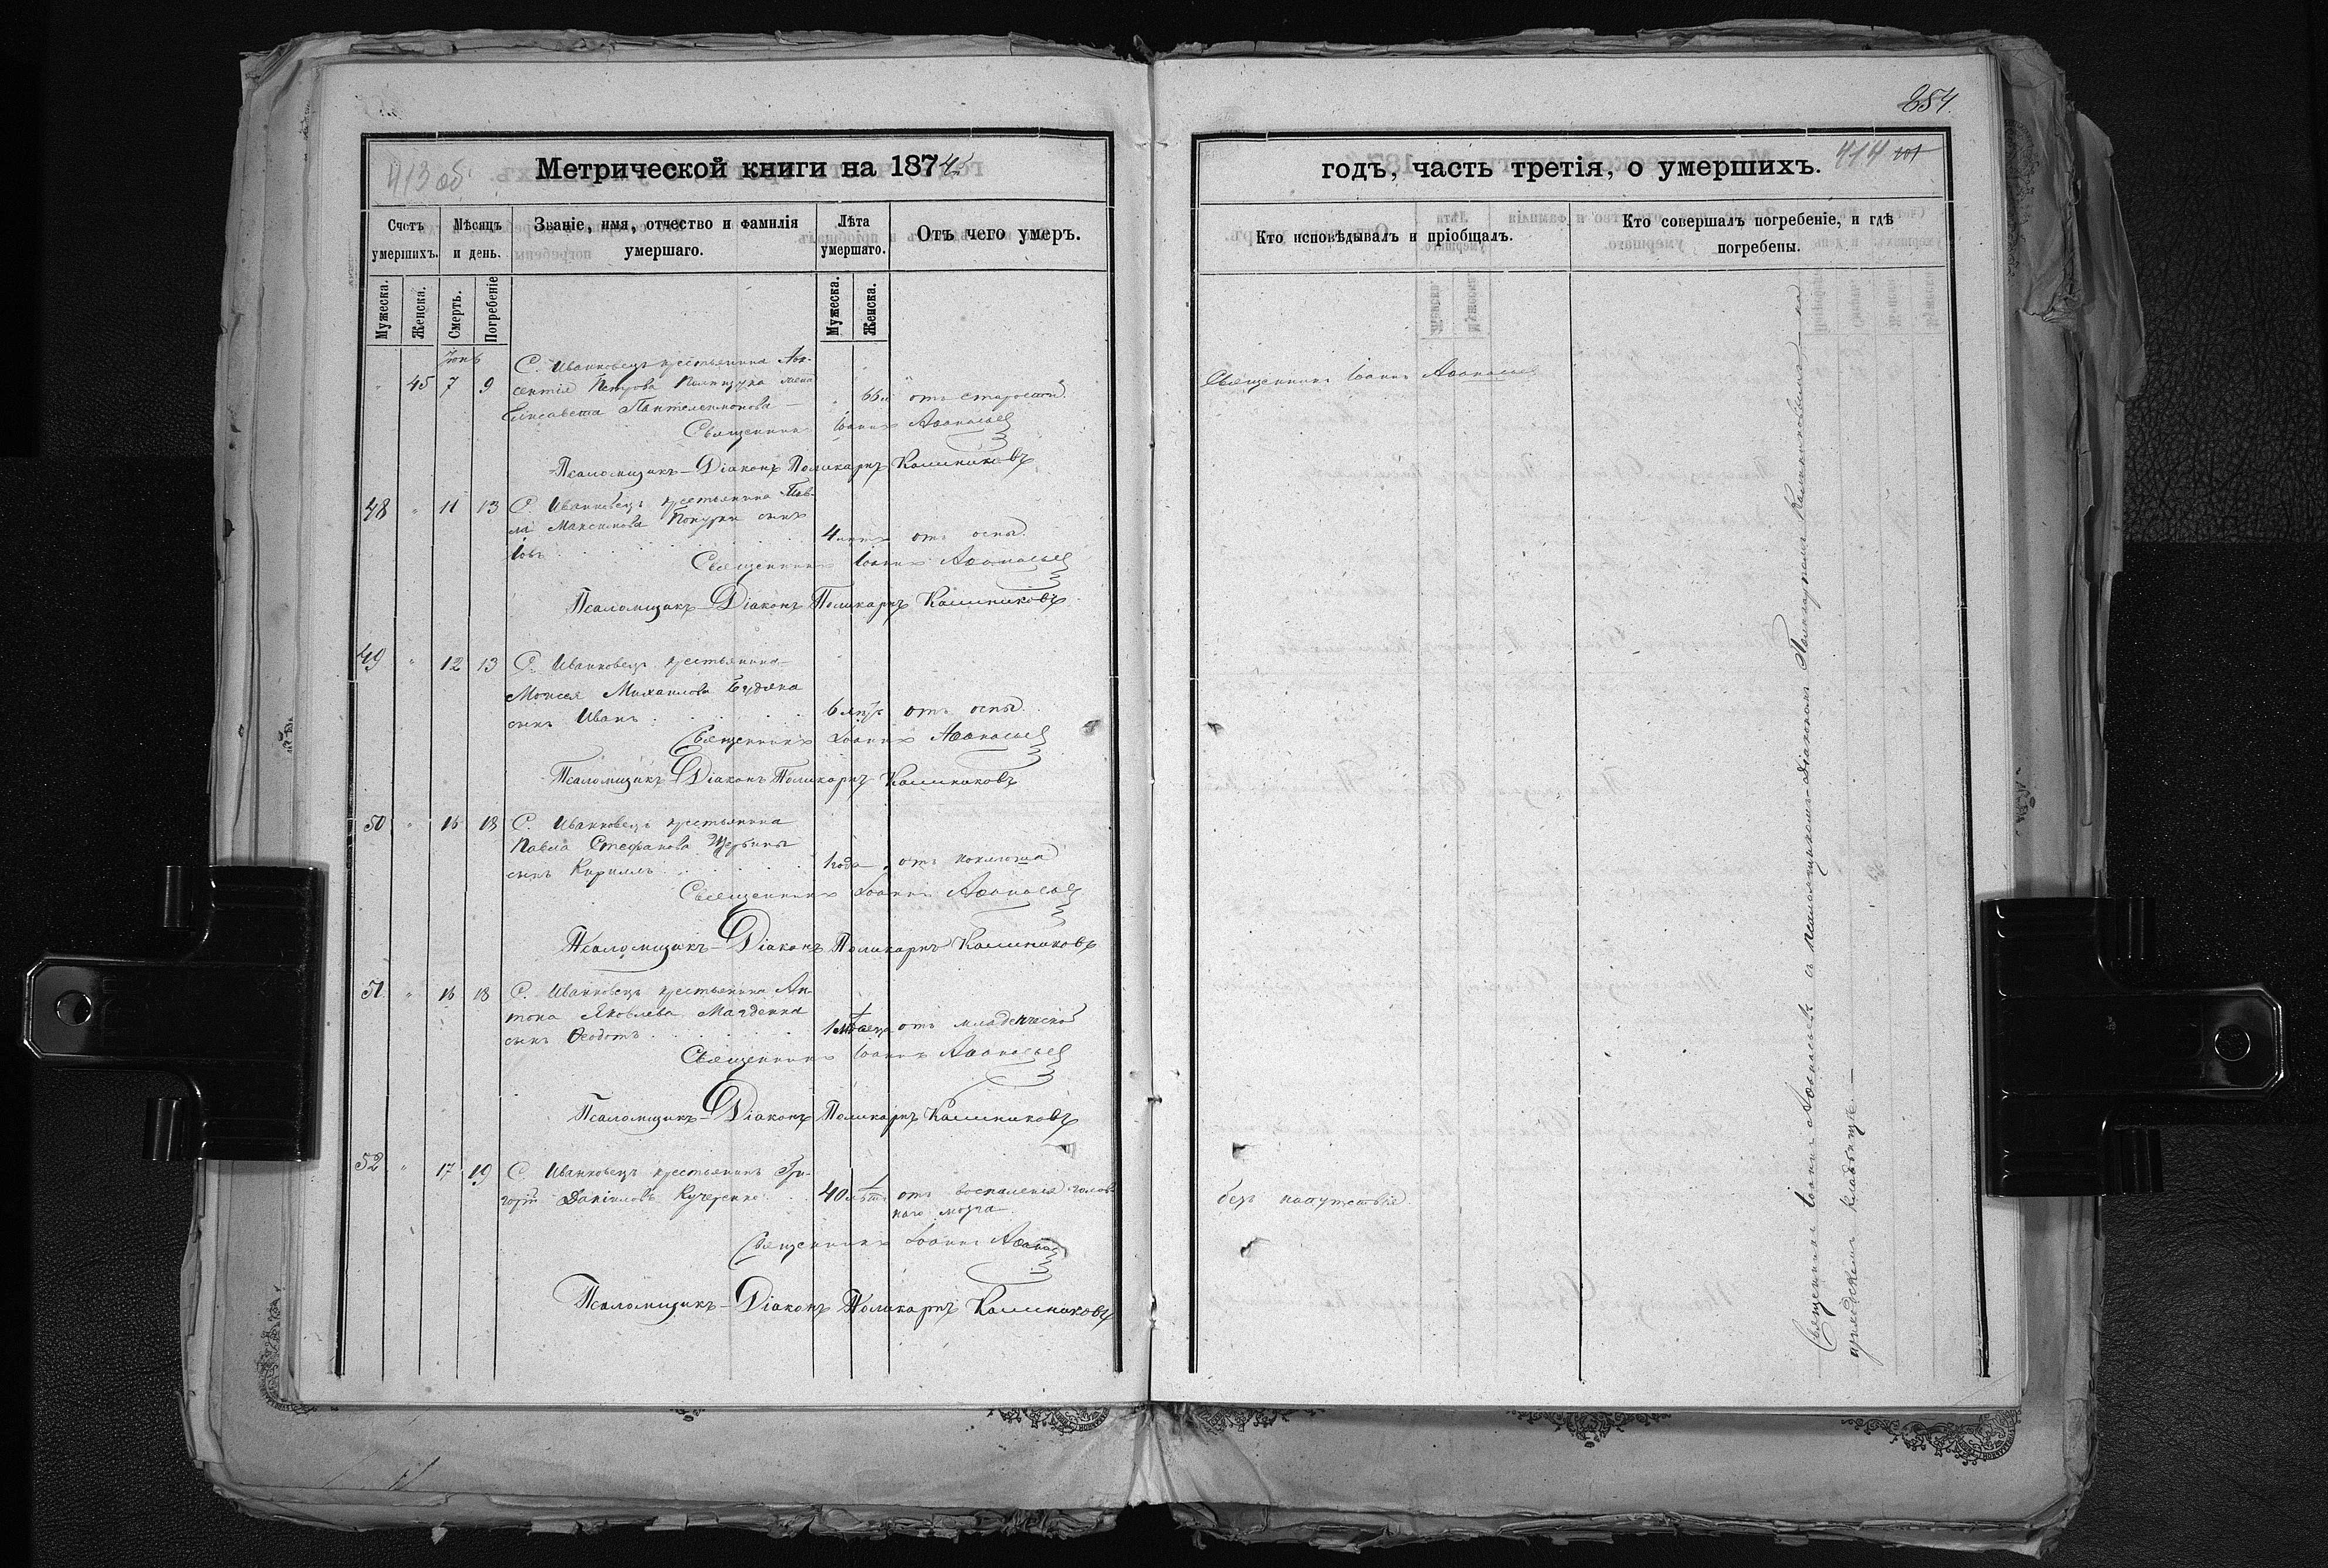 854.
413 об
Метрической книги на 1874
годъ, часть третія, о умершихъ.
414 101
Счетъ умершихъ.
Мѣсяцъ и день.
Званіе, имя, отчество и фамилія умершаго.
Лѣта умершаго.
Отъ чего умеръ.
Кто исповѣдывалъ и пріобщалъ.
Кто совершалъ погребеніе, и гдѣ погребены.
Мужеска.
Женска.
Смерть.
Погребеніе
Мужеска.
Женска.
Іюнь
" 45 7 9 С. Иванковецъ крестьянина Ав-
сентія Петрова жена
Елисавета Пантелеимонова 66 отъ старости.
Священникъ Іоаннъ Аѳанасьев
Псаломщикъ-Діаконъ Поликарпъ Калиниковъ
Священникъ Іоаннъ Аѳанасьев
48 " 11 13 С. Иванковецъ крестьянина Пав-
ла Максимова сынъ
Іовъ 4 отъ оспы.
Священникъ Іоаннъ Аѳанасьев
Псаломщикъ-Діаконъ Поликарпъ Калиниковъ
49 " 12 13 С. Иванковецъ крестьянина
Моисея Михаилова Будяка
сынъ Иванъ 6 лѣтъ отъ оспы.
Священникъ Іоаннъ Аѳанасьев
Псаломщикъ Діаконъ Поликарпъ Калиниковъ
50 " 16 18 С. Иванковецъ крестьянина
Павла Стефанова Щербины
сынъ Кириллъ 1 года отъ коклюша
Священникъ Іоаннъ Аѳанасьев
Псаломщикъ-Діаконъ Поликарпъ Калиниковъ
51 " 16 18 С. Иванковецъ крестьянина Ан-
тона Яковлева
сынъ Ѳеодотъ 1 мѣсяца отъ младенческой
Священникъ Іоаннъ Аѳанасьев
Псаломщикъ-Діаконъ Поликарпъ Калиниковъ
52 " 17 19 С. Иванковецъ крестьянинъ Гри-
горій Даніиловъ Кучеренко 40 лѣтъ отъ воспаленія голов-
наго мозга
безъ напутствія
Священникъ Іоаннъ Аѳанас
Псаломщикъ-Діаконъ Поликарпъ Калиниковъ
Священникъ Іоаннъ Аѳанасьевъ съ псаломщикомъ-Діакономъ Поликарпомъ Калиниковымъ на
приходскомъ кладбищѣ.